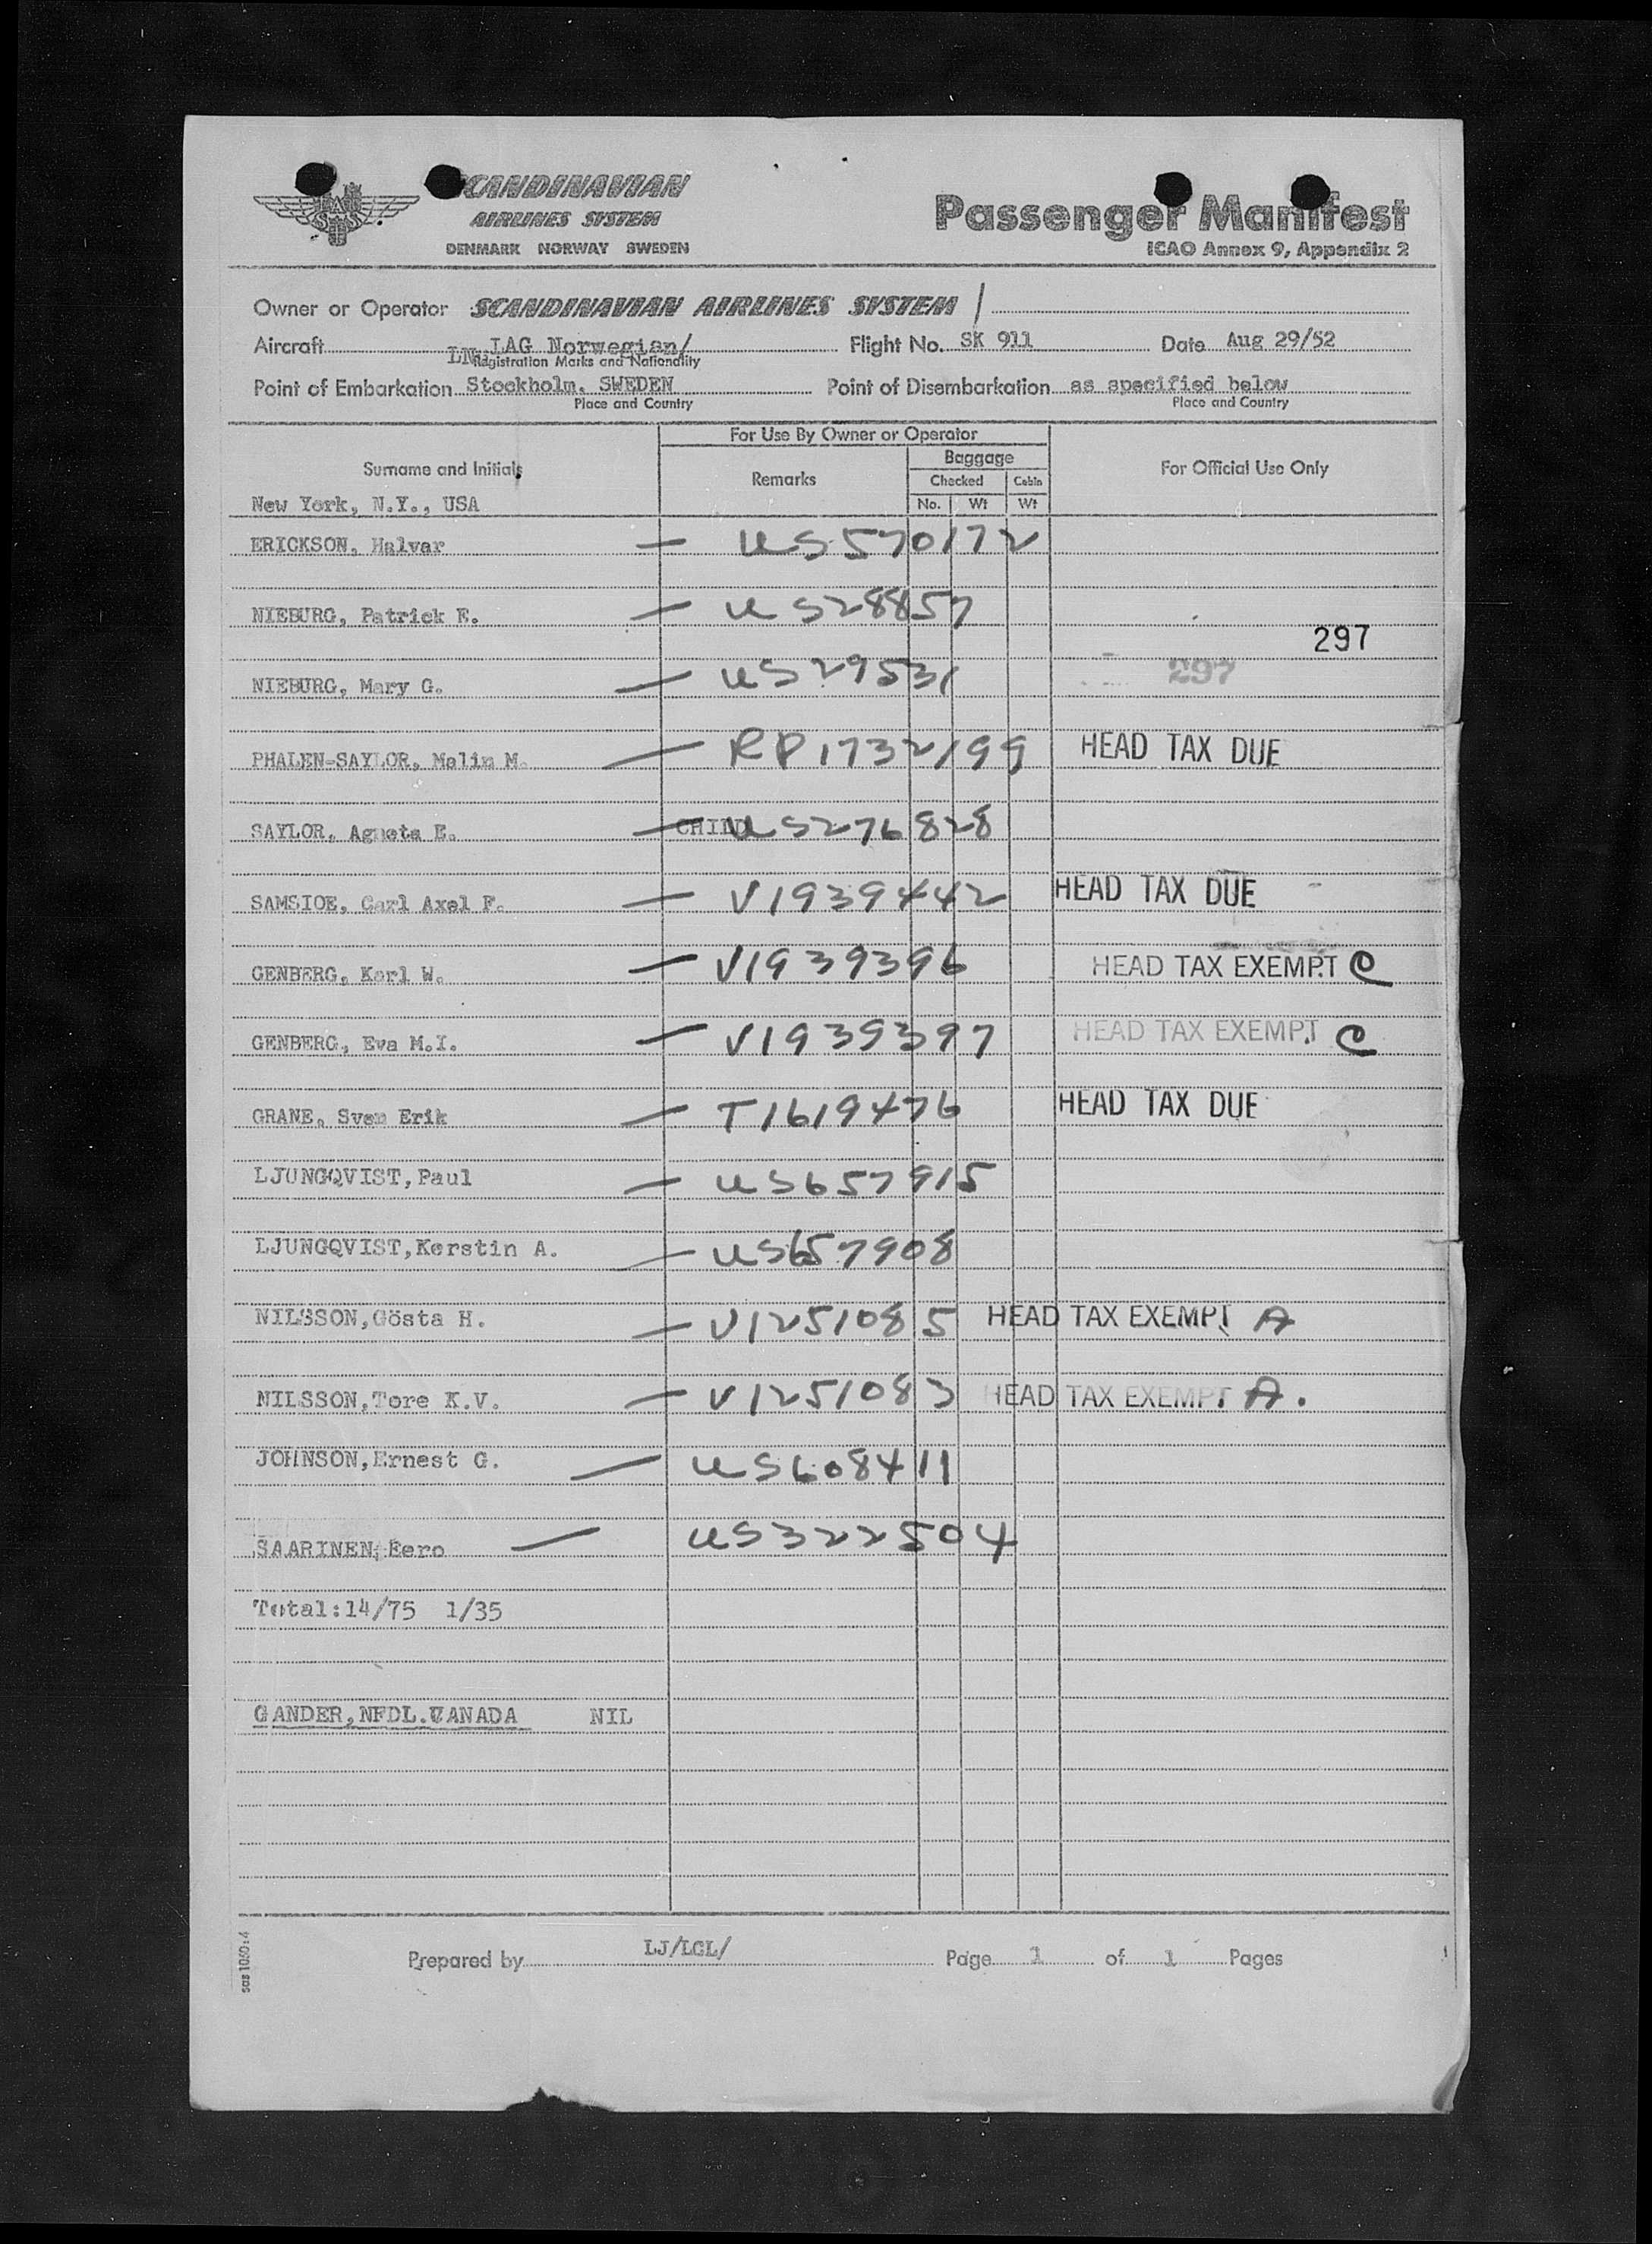 SCANDINAVIAN
AIRLINES SYSTEM
DENMARK NORWAY SWEDEN
Passenger Manifest
ICAO Annex 9, Appendix 2
Owner or Operator SCANDINAVIAN AIRLINES SYSTEM /
Aircraft LN-LAG Norwegian/ Flight No. SK 911 Date Aug 29/52
Registration Marks and Nationality
Point of Embarkation Stockholm, SWEDEN Point of Disembarkation as specified below
Place and Country Place and Country
For Use By Owner or Operator
Surname and Initials Remarks Baggage For Official Use Only
Checked Cabin
No. Wt Wt
New York, N.Y., USA
ERICKSON, Halvar — US 570172
NIEBURG, Patrick E. — US 28857
297
NIEBURG, Mary G. — US 29531 297
PHALEN-SAYLOR, Malin M. — RP 1732199 HEAD TAX DUE
SAYLOR, Agneta E. — CHILD US 276828
SAMSIOE, Carl Axel F. — V1939442 HEAD TAX DUE
GENBERG, Karl W. — V1939396 HEAD TAX EXEMPT C
GENBERG, Eva M.I. — V1939397 HEAD TAX EXEMPT C
GRANE, Sven Erik — T1619476 HEAD TAX DUE
LJUNGQVIST,Paul — US 657915
LJUNGQVIST,Kerstin A. — US 657908
NILSSON,Gösta H. — V1251085 HEAD TAX EXEMPT A
NILSSON,Tore K.V. — V1251083 HEAD TAX EXEMPT A.
JOHNSON,Ernest G. — US 608411
SAARINEN, Eero — US 322504
Total:14/75 1/35
GANDER,NFDL.CANADA NIL
Prepared by LJ/LGL/ Page 1 of 1 Pages
sas 1050:4